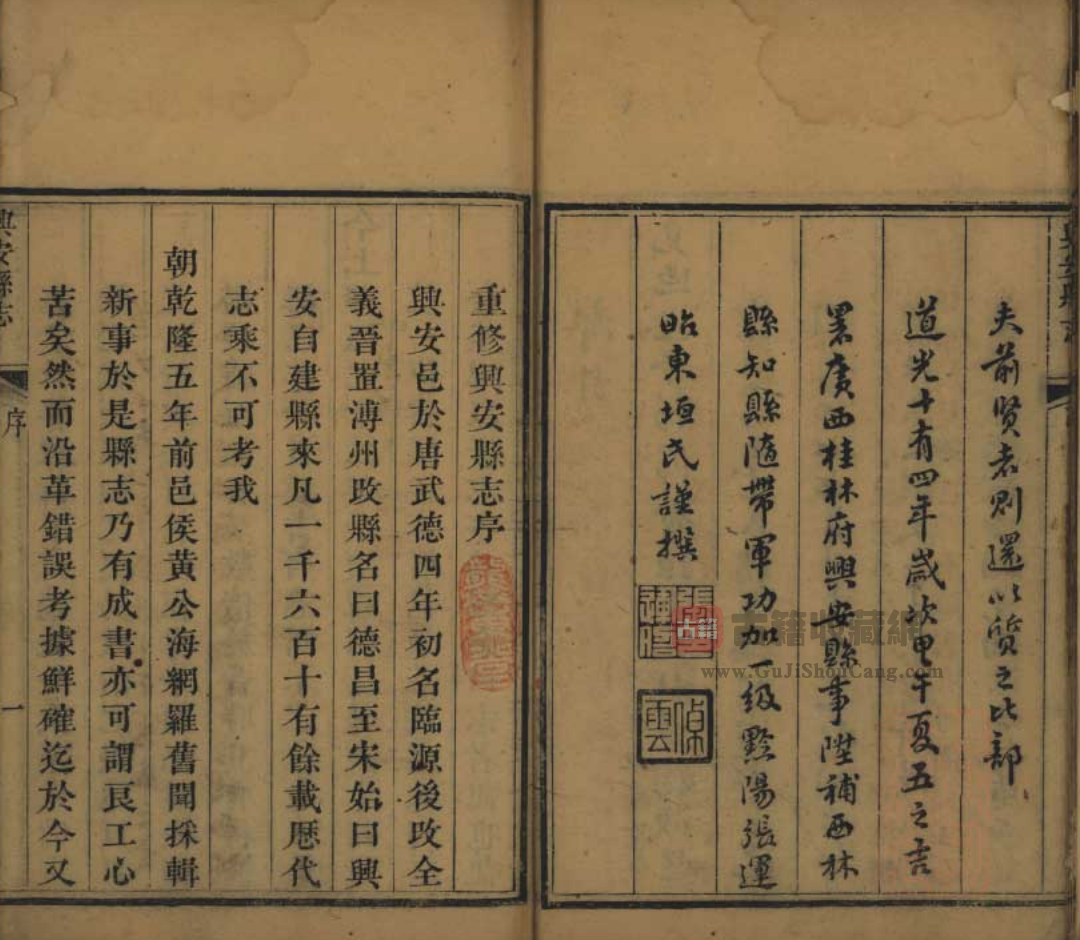 夫前賢者則還以質之比部
道光十有四年歲次甲午夏五之吉
署廣西桂林府興安縣事陞補西林
縣知縣隨帶軍功加一級黔陽張運
昭東垣氏謹撰
重修興安縣志序
興安邑於唐武德四年初名臨源後改全
義晉置溥州改縣名曰德昌至宋始曰興
安自建縣來凡一千六百十有餘載歷代
志乘不可考我
朝乾隆五年前邑侯黃公海網羅舊聞採輯
新事於是縣志乃有成書亦可謂良工心
苦矣然而沿革錯誤考據鮮確迄於今又
興安縣志
序
一
古籍
古籍收藏網
www.GuJiShouCang.com